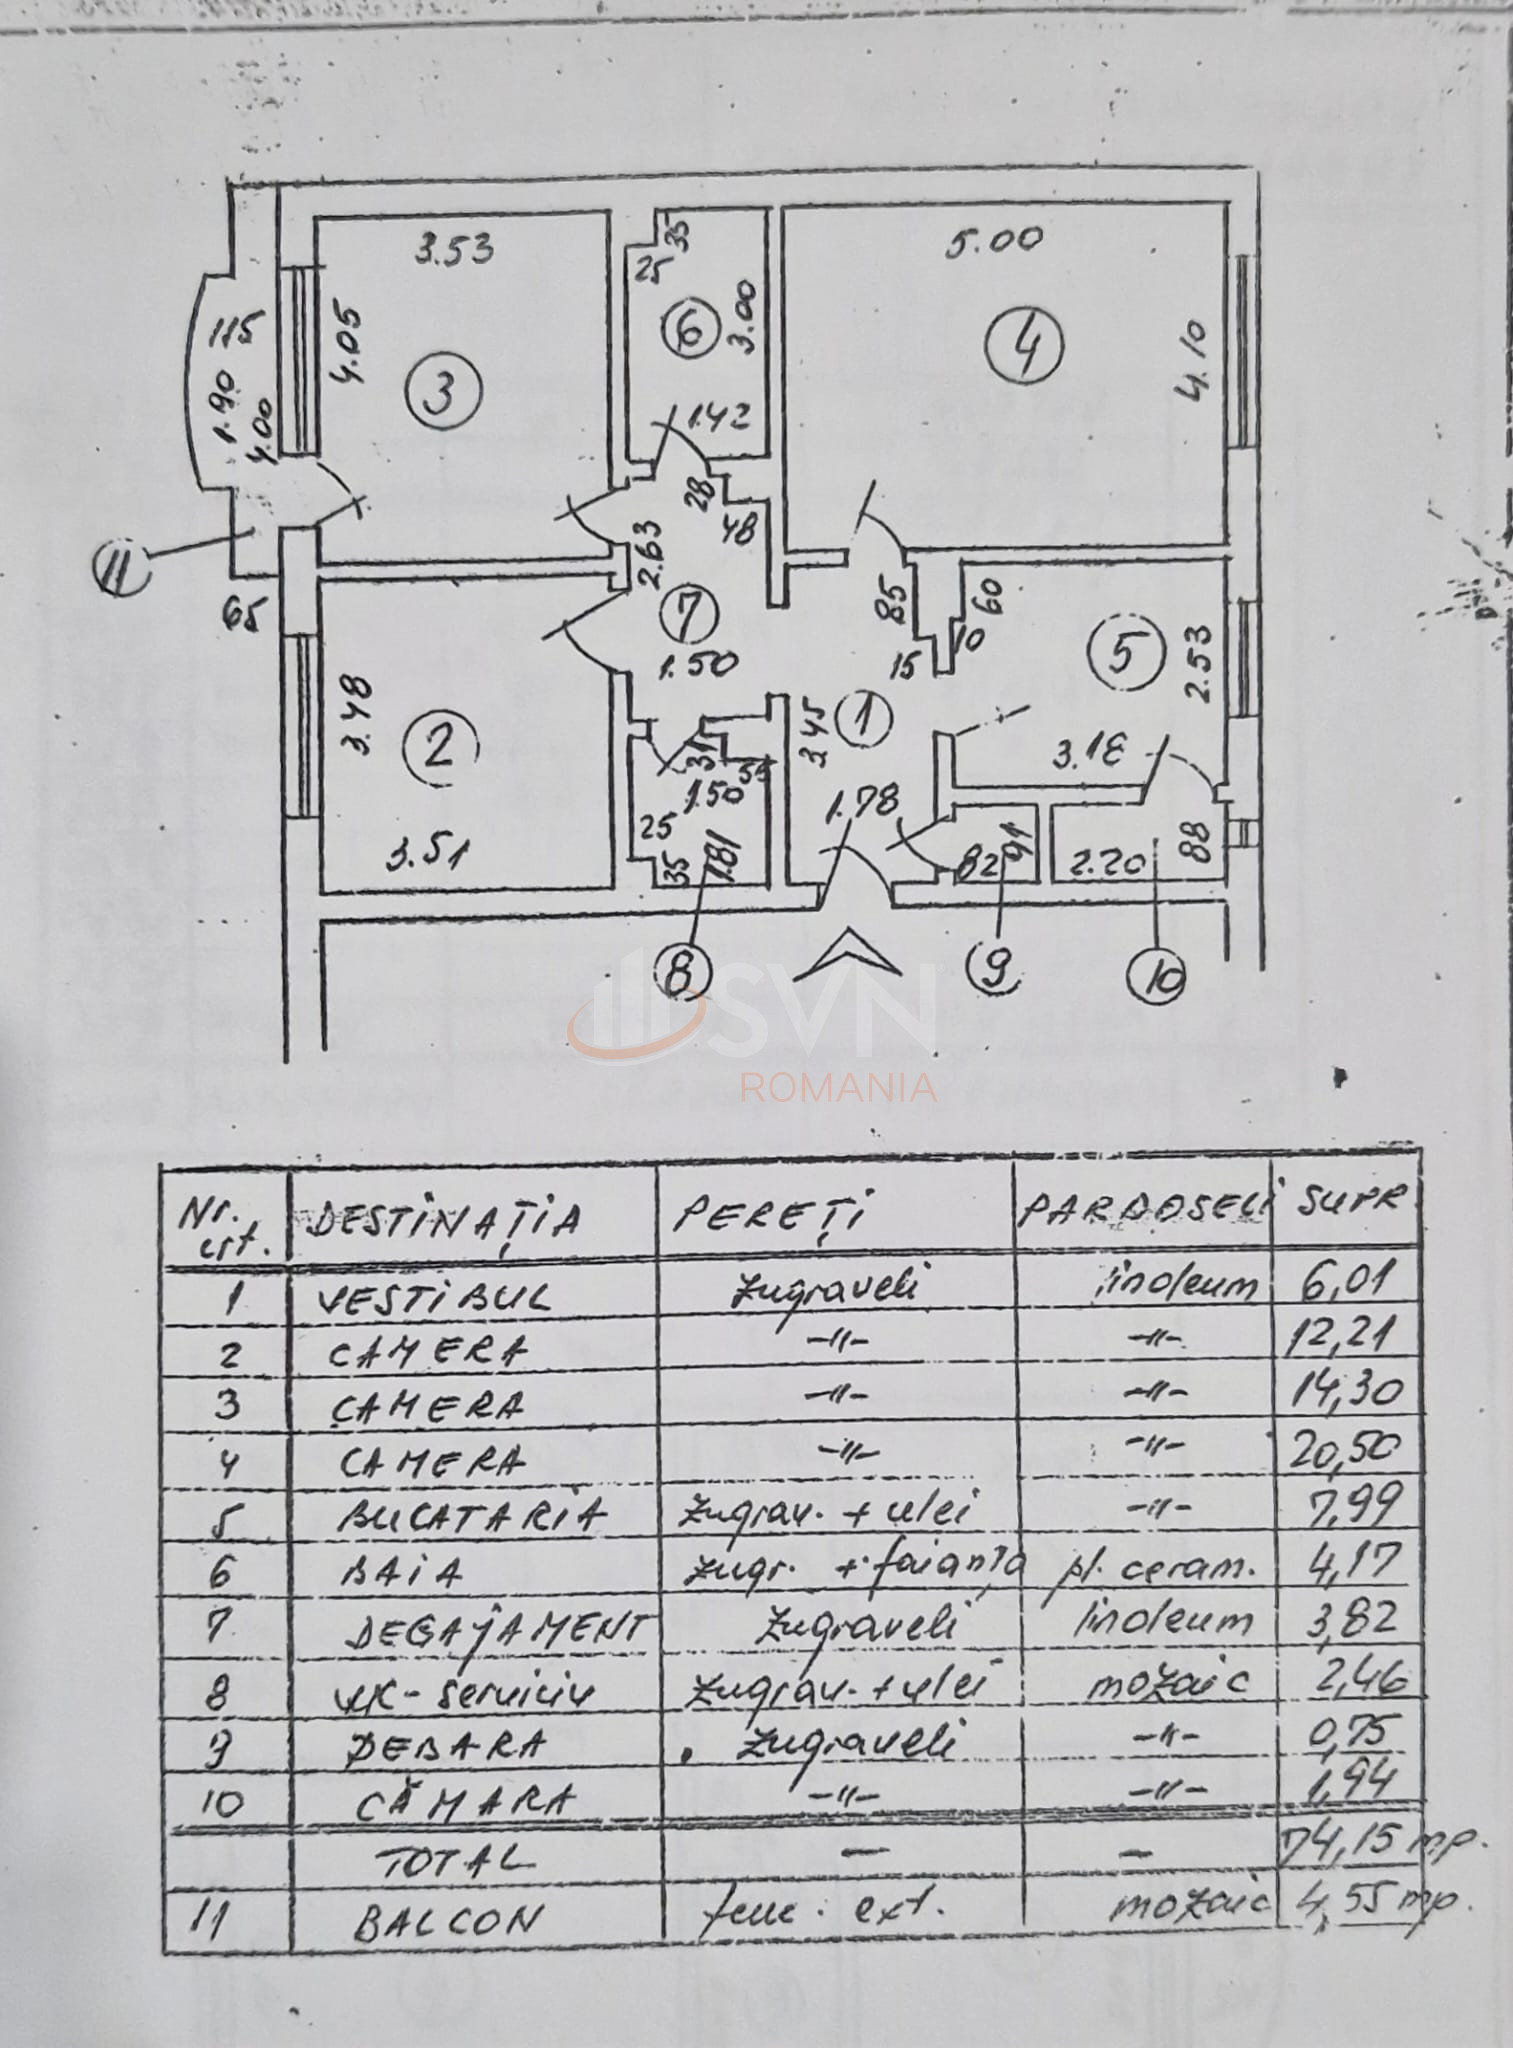 3.53
35
5.00
25
115
4.05
6
3.00
4
4.10
3
1.90
4.00
1.42
28
48
11
2.63
85
60
65
7
10
5
1.50
15
2.53
3.48
2
3.45
1
31
55
3.18
1.50
1.78
3.51
25
35
1.81
82
91
2.20
88
8
9
10
SVN
ROMANIA
Nr. crt. DESTINAȚIA PEREȚI PARDOSELI SUPR
1 VESTIBUL zugraveli linoleum 6,01
2 CAMERA -"- -"- 12,21
3 CAMERA -"- -"- 14,30
4 CAMERA -"- -"- 20,50
5 BUCATARIA zugrav. + ulei -"- 7,99
6 BAIA zugr. + faianța pl. ceram. 4,17
7 DEGAJAMENT zugraveli linoleum 3,82
8 WC-serviciu zugrav. + ulei mozaic 2,46
9 DEBARA zugraveli -"- 0,75
10 CĂMARA -"- -"- 1,94
TOTAL — — 74,15 mp.
11 BALCON tenc. ext. mozaic 4,55 mp.